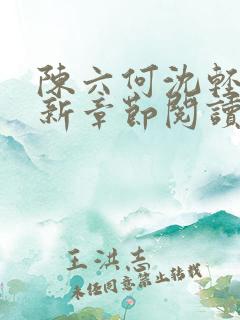 陳六何沈輕
新章節閱讀
王洪志
未经同意禁止转载